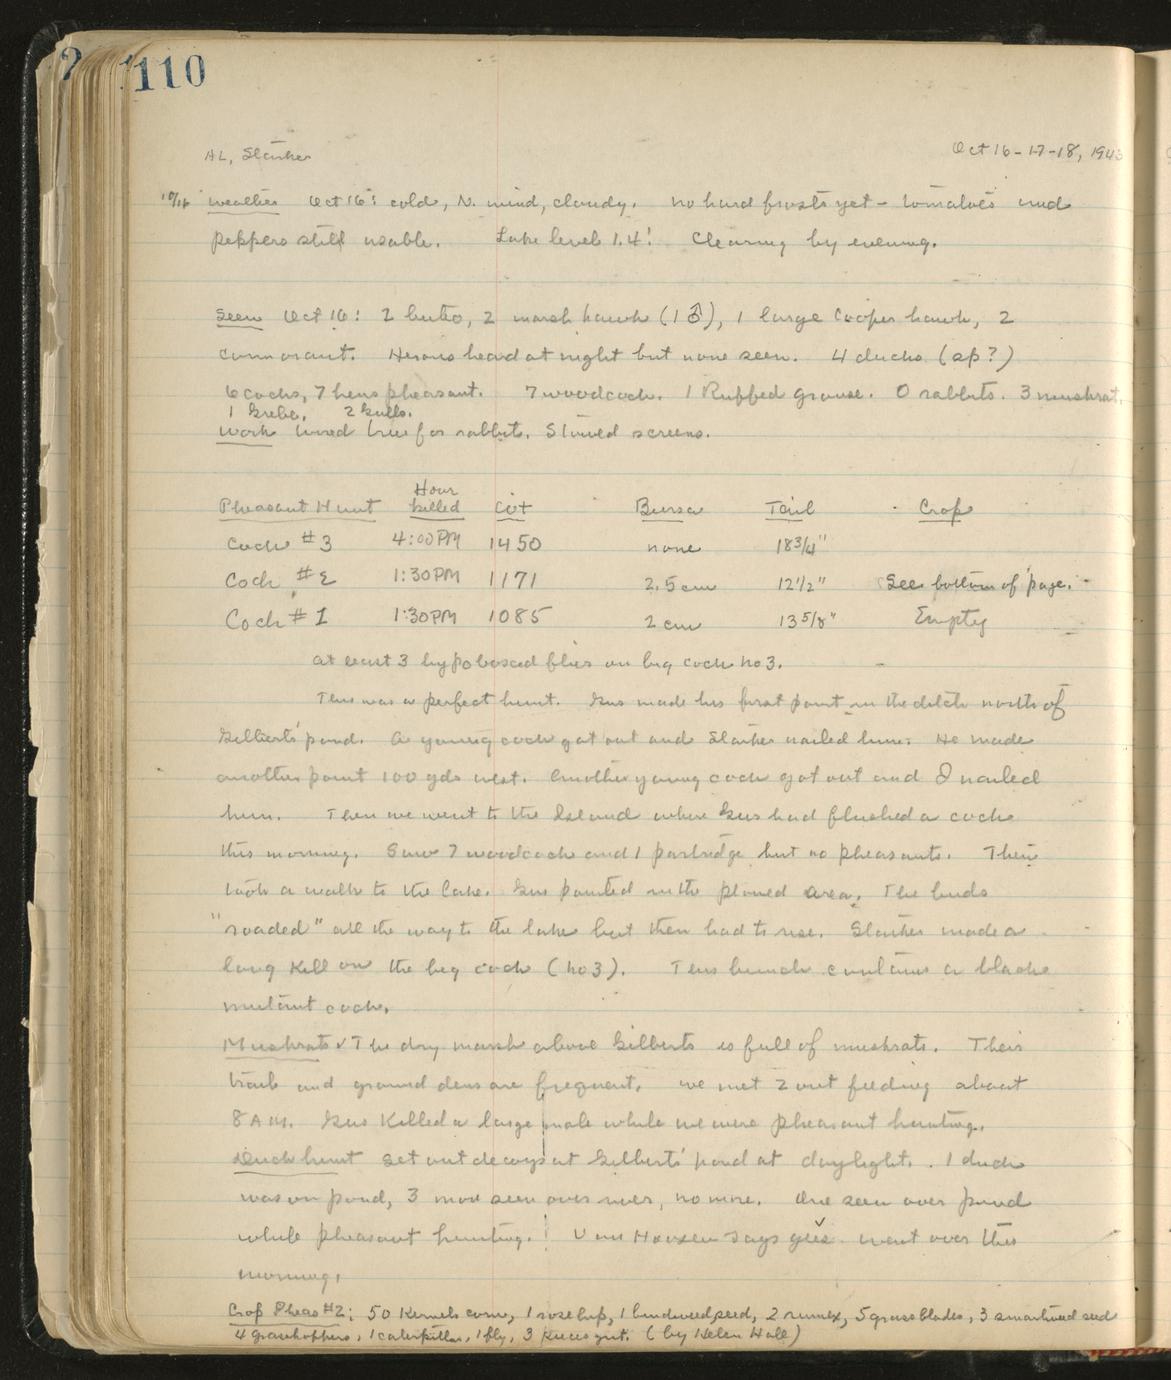 110
AL, Starker Oct 16-17-18, 1943
10/16 weather Oct 16: cold, N. wind, cloudy. no hard frosts yet - tomatoes and
peppers still usable. Lake level 1.4'. Clearing by evening.
Seen Oct 16: 2 buteo, 2 marsh hawk (1 ♂), 1 large Cooper hawk, 2
cormorant. Herons heard at night but none seen. 4 ducks (sp?)
6 cocks, 7 hens pheasant. 7 woodcock. 1 Ruffed grouse. 0 rabbits. 3 muskrat.
1 Grebe. 2 Gulls.
Work wired trees for rabbits. Stowed screens.
Pheasant Hunt Hour killed Wt Bursa Tail Crop
Cock #3 4:00PM 1450 none 18 3/4"
Cock #2 1:30PM 1171 2.5cm 12 1/2" See bottom of page.
Cock #1 1:30PM 1085 2 cm 13 5/8" Empty
At least 3 hypoboscid flies on big cock no 3.
This was a perfect hunt. Gus made his first point in the ditch north of
Gilbert's pond. A young cock got out and Starker nailed him. He made
another point 100 yds west. Another young cock got out and I nailed
him. Then we went to the Island where Gus had flushed a cock
this morning. Saw 7 woodcock and 1 partridge but no pheasants. Then
took a walk to the Lake. Gus pointed in the plowed area. The birds
"roaded" all the way to the lake but then had to rise. Starker made a
long kill on the big cock (no 3). This bunch contains a black
mutant cock.
Muskrats The dry marsh above Gilberts is full of muskrats. Their
trails and ground dens are frequent. We met 2 out feeding about
8 AM. Gus killed a large male while we were pheasant hunting.
Duck hunt Set out decoys at Gilberts' pond at daylight. 1 duck
was on pond, 3 more seen over river, no more. One seen over pond
while pheasant hunting. Van Hoosen says geese went over this
morning.
Crop Pheas #2: 50 kernels corn, 1 rose hip, 1 bindweed seed, 2 rumex, 5 grass blades, 3 smartweed seed
4 grasshoppers, 1 caterpillar, 1 fly, 3 pieces grit. (by Helen Hall)